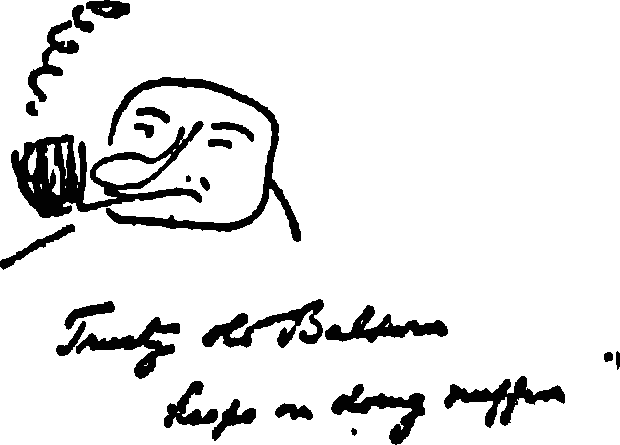 Trusty old Baldwin
keeps on doing nuffin "